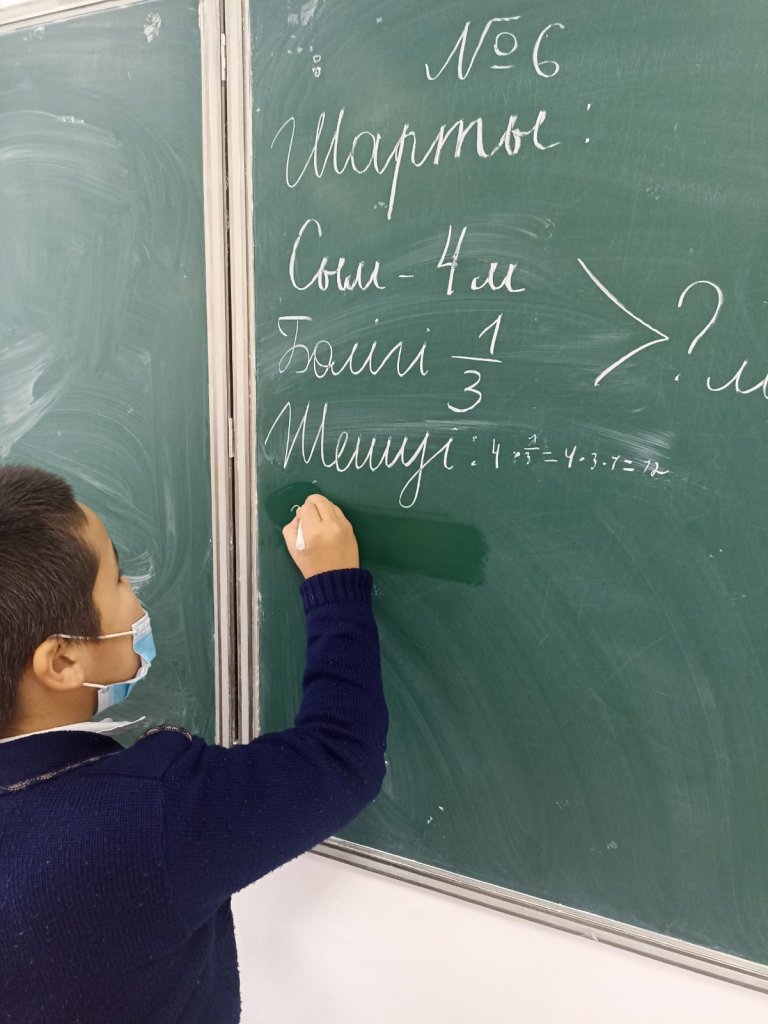 № 6
Шарты:
Сым - 4 м
Бөлігі 1/3 > ? м
Шешуі: 4 : 1/3 = 4 · 3 · 1 = 12